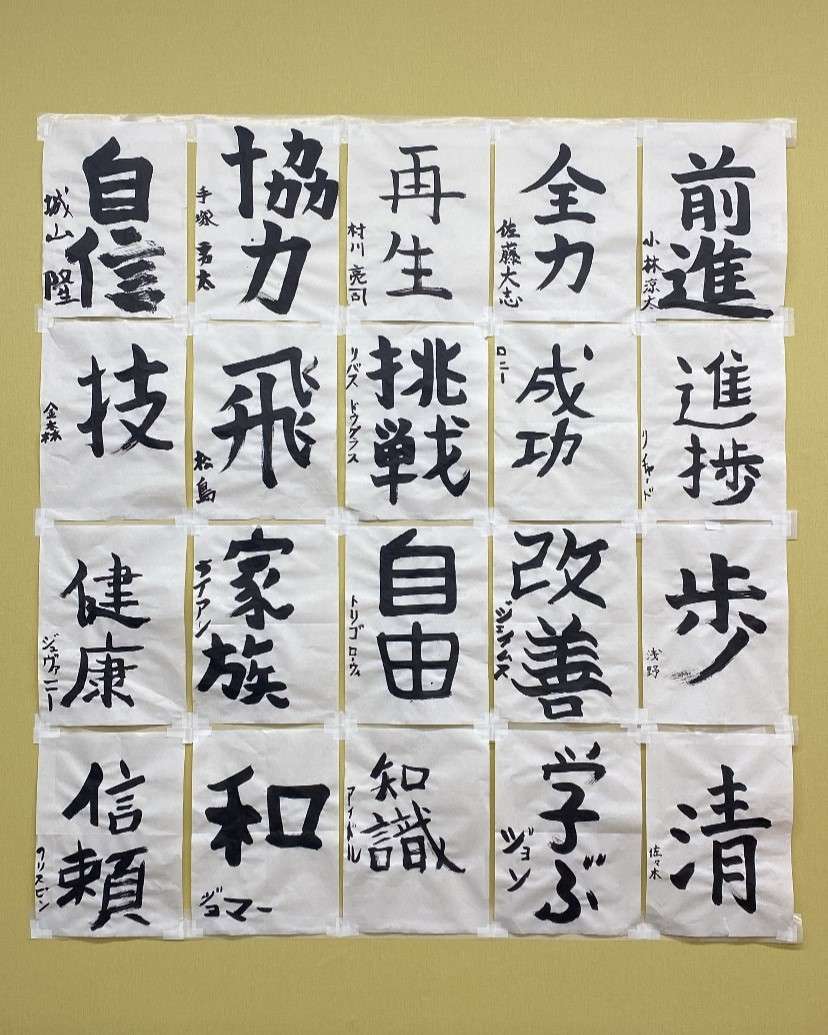 前進
小林涼太
全力
佐藤大志
再生
村川 亮司
協力
手塚 勇太
自信
城山 隆
進捗
リチャード
成功
ロニー
挑戦
リバス ドウグラス
飛
松島
技
金森
歩
浅野
改善
ジェイムス
自由
トリゴ ローウィ
家族
健康
ジュヴァニー
清
佐々木
学ぶ
ジョン
知識
アイドル
和
ジョマー
信頼
クリスビン